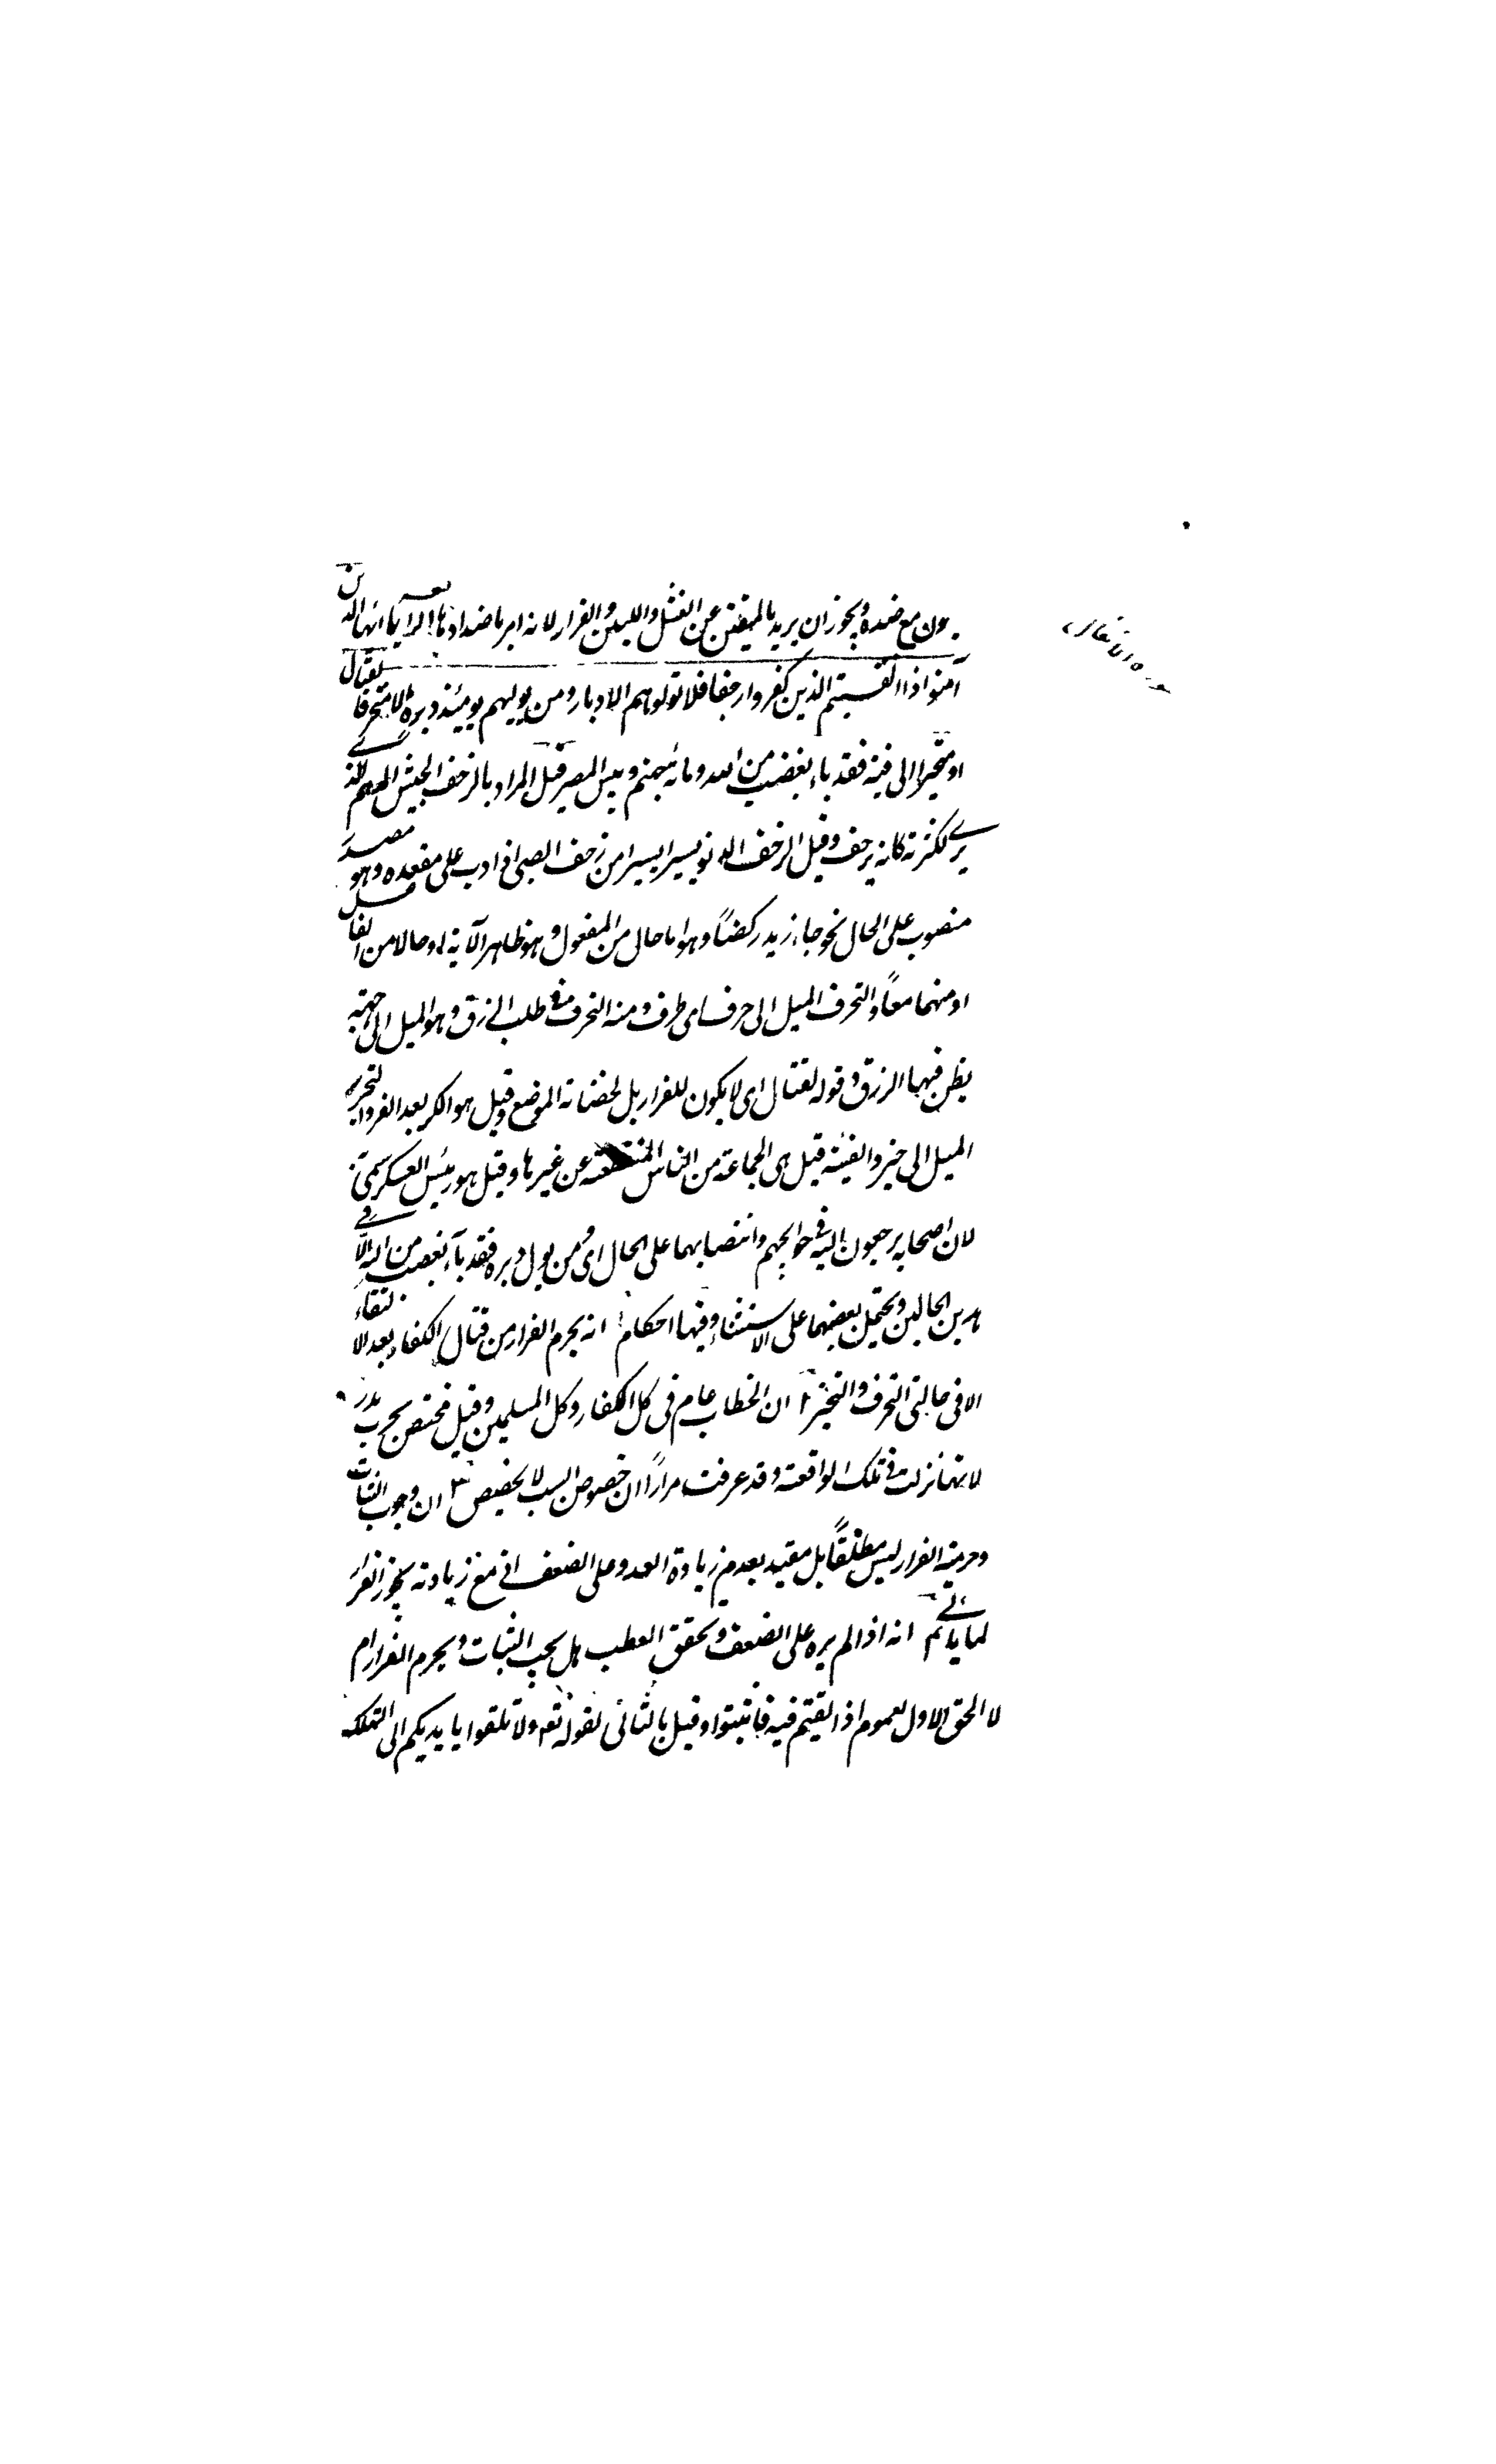 يكون مع ضده ويجوز ان يريد بالمتقين عن الفشل واللين والفرار لانه امر باضدادها الرابعة يا ايها الذين
آمنوا اذا لقيتم الذين كفروا زحفا فلا تولوهم الادبار ومن يولهم يومئذ دبره الا متحرفا لقتال
او متحيزا الى فئة فقد باء بغضب من الله ومأويه جهنم وبئس المصير قيل المراد بالزحف الجيش الدهم الذي
يرى لكثرته كانه يزحف وقيل الزحف الدنو يسيرا يسيرا من زحف الصبي اذا دب على مقعده وهو مصدر
منصوب على الحال نحو جاء زيد ركضاً وهو اما حال من المفعول وهو ظاهر الآية او حالا من الفاعل
او منهما معاً والتحرف الميل الى حرف اى طرف ومنه التحرف فى طلب الرزق وهو الميل الى جهة
يظن فيها الرزق وقوله لقتال اى لا يكون للفرار بل لحضانة الموضع وقيل هو الكر بعد الفر والتحيز
الميل الى حيز والفئة قيل هى الجماعة من الناس المنقطعة عن غيرها وقيل هو رئيس العسكر سمى به
لان اصحابه يرجعون اليه فى حوائجهم وانتصابهما على الحال اى ومن يول دبره فقد باء بغضب من الله الا فى
هذين الحالين ويحتمل نصبهما على الاستثناء وفيها احكام ١ انه يحرم الفرار من قتال الكفار بعد الالتقاء
الا فى حالتى التحرف والتحيز ٢ ان الخطاب عام فى كل الكفار وكل المسلمين وقيل مختص بحرب بدر
لانها نزلت فى تلك الواقعة وقد عرفت مراراً ان خصوص السبب لا يخصص ٣ ان وجوب الثبات
وحرمة الفرار ليس مطلقاً بل مقيد بعدم زيادة العدو على الضعف اذ مع زيادته يجوز الفرار
لما يأتى ٤ انه اذا لم يزد على الضعف وتحقق العطب هل يجب الثبات ويحرم الفرار ام
لا الحق الاول لعموم اذا لقيتم فئة فاثبتوا وقيل بالثانى لقوله تع ولا تلقوا بايديكم الى التهلكة